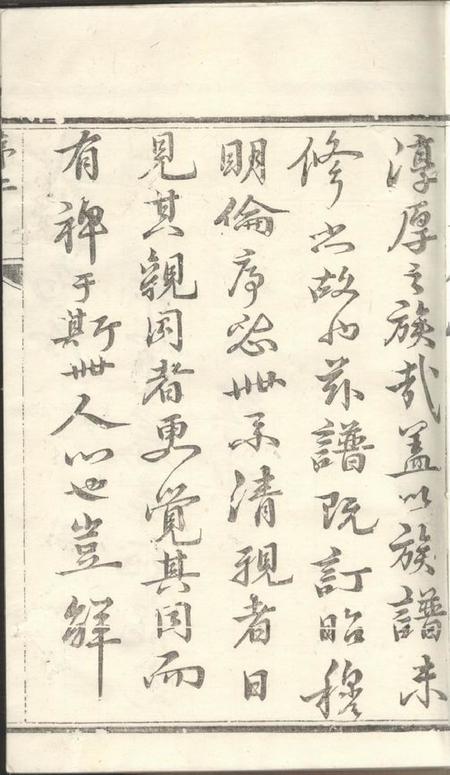 淳厚之族哉蓋以族譜未
修之故也茲譜既訂昭穆
明倫序世系清親者日
見其親固者更覺其固而
有裨于斯世人心也豈鮮